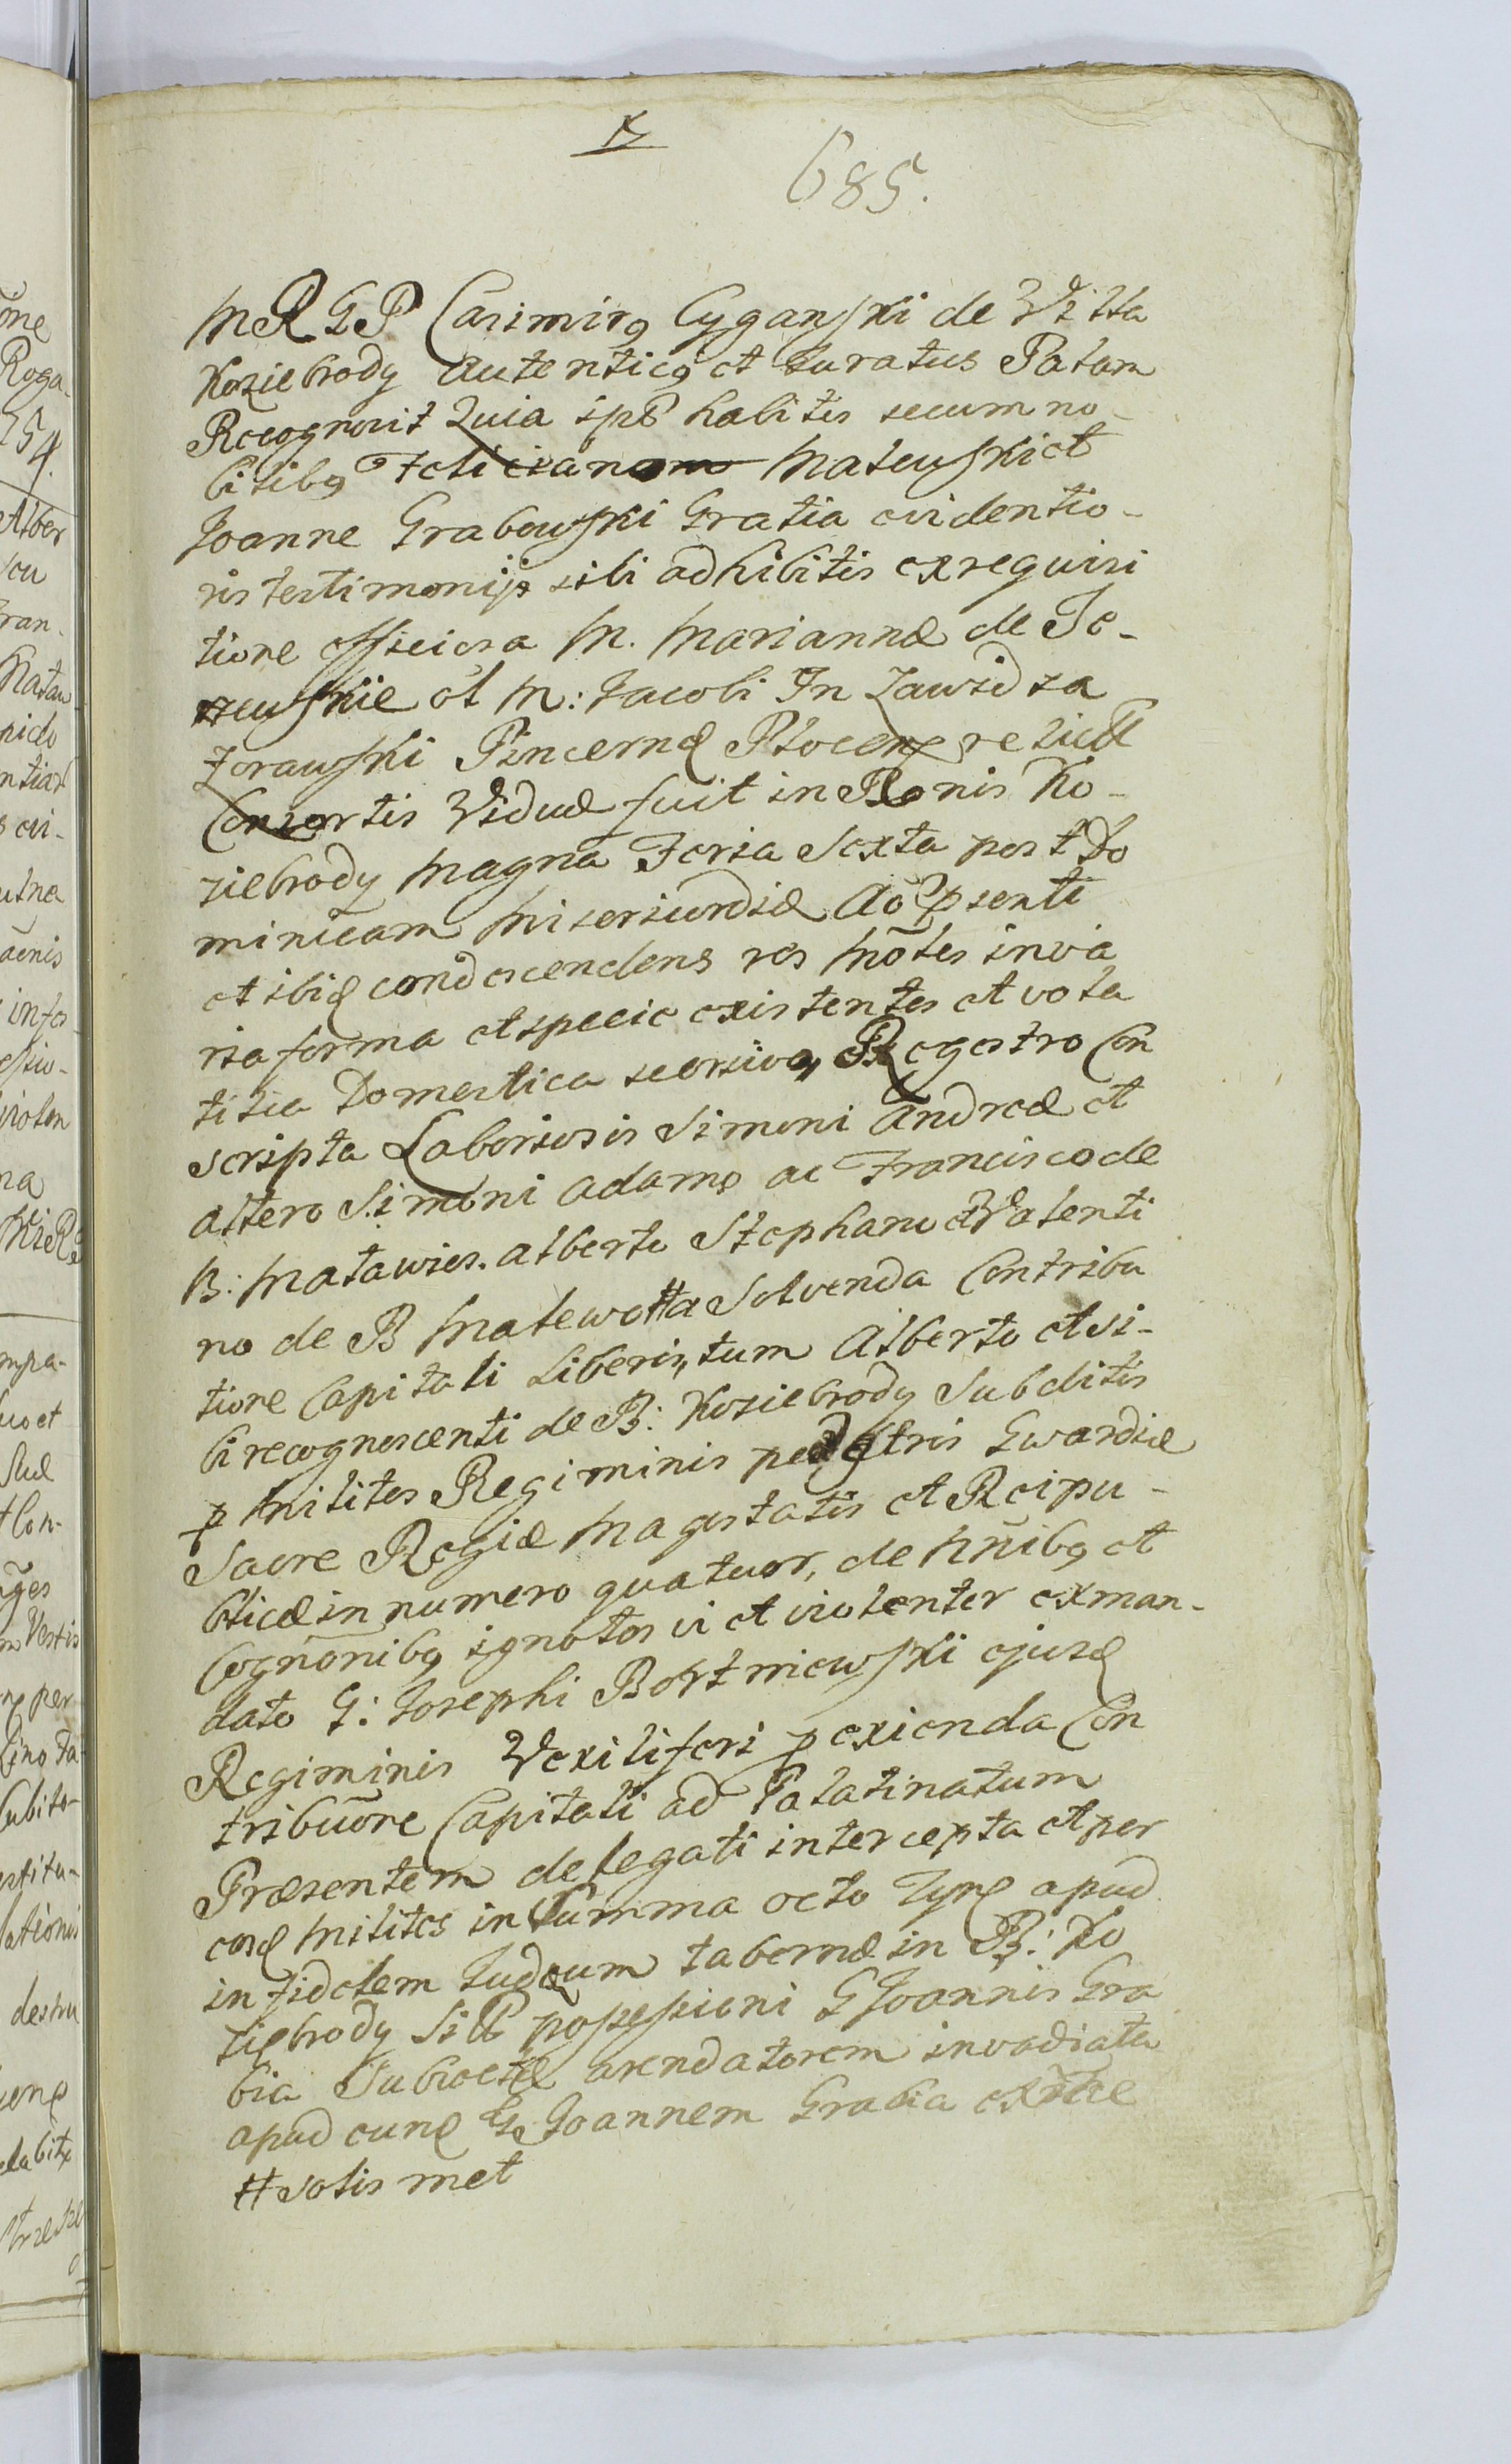 685.
M R G P Casimirꝯ Cyganski de Villa
Koziebrody Autenticꝯ et Iuratus Palam
Recognovit Quia ipse habitis secum no-
bilibꝯ Feliciano Malewski et
Joanne Grabowski Gratia evidentio-
ris testimonij sibi adhibitis ex requisi
tione officiosa M. Mariannæ de
olim M: Jacobi In Zawidza
Zorawski Pincernæ Plocen relictæ
Consortis Viduæ fuit in Bonis Ko-
ziebrody Magna Feria Sexta post Do
minicam Misericordiæ Ao psenti
et ibid condescendens res mobles in va
ria forma et specie existentes et vola
tilia Domestica seorsivo Regestro Con
scripta Laboriosis Simoni Andreæ et
altero Simoni Adamo ac Francisco de
B: Malawies. Alberto Stephano et Valenti
no de B Malewo # a Solvenda Contribu
tione Capitali Liberis, tum Alberto et si-
bi recognoscenti de B: Koziebrody Subditis
p Milites Regiminis pedestris Gwardiæ
Sacre Regiæ Magestatis et Reipu-
blicæ in numero quatuor, de Nnibꝯ et
Cognonibꝯ ignotos vi et violenter ex man-
dato G: Josephi Bortniewski ejusd
Regiminis Vexiliferi p exienda Con
tribuone Capitali ad Palatinatum
Præsentem delegati intercepta et per
eosd Milites in Summa octo Tynf apud
infidelem Judæum tabernæ in B: Ko
ziebrody Sibi possessioni G Joannis Gra
bia Subiectæ arendatorem invadiata
apud eund G Joannem Grabia
# solis met